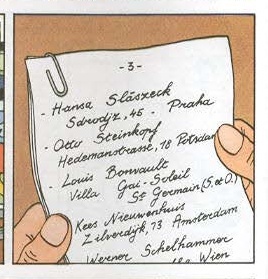 - 3 -
- Hansa Slászeck
Sdrodjz. 45 - Praha
- Otto Steinkopf
Hedemanstrasse, 18 Potsdam
- Louis Bonvault
Villa Gai-Soleil
St Germain (S. et O.)
Kees Nieuwenhuis
Zilverdijk, 73 Amsterdam
Werner Schelhammer
Wien